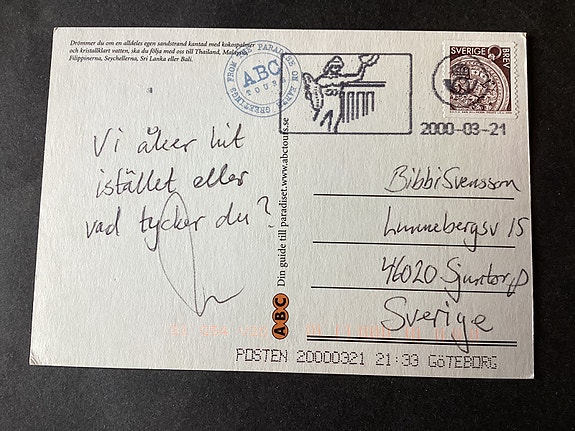 Drömmer du om en alldeles egen sandstrand kantad med kokospalmer
och kristallklart vatten, ska du följa med oss till Thailand, Malaysia,
Filippinerna, Seychellerna, Sri Lanka eller Bali.
GREETINGS FROM THE PARADISE ON EARTH
ABC
TOURS
SVERIGE
BREV
2000-03-21
Vi åker hit
istället eller
vad tycker du?
ABC Din guide till paradiset. www.abctours.se
Bibbi Svensson
Lunnebergsv 15
46020 Sjuntorp
Sverige
POSTEN 20000321 21:33 GÖTEBORG